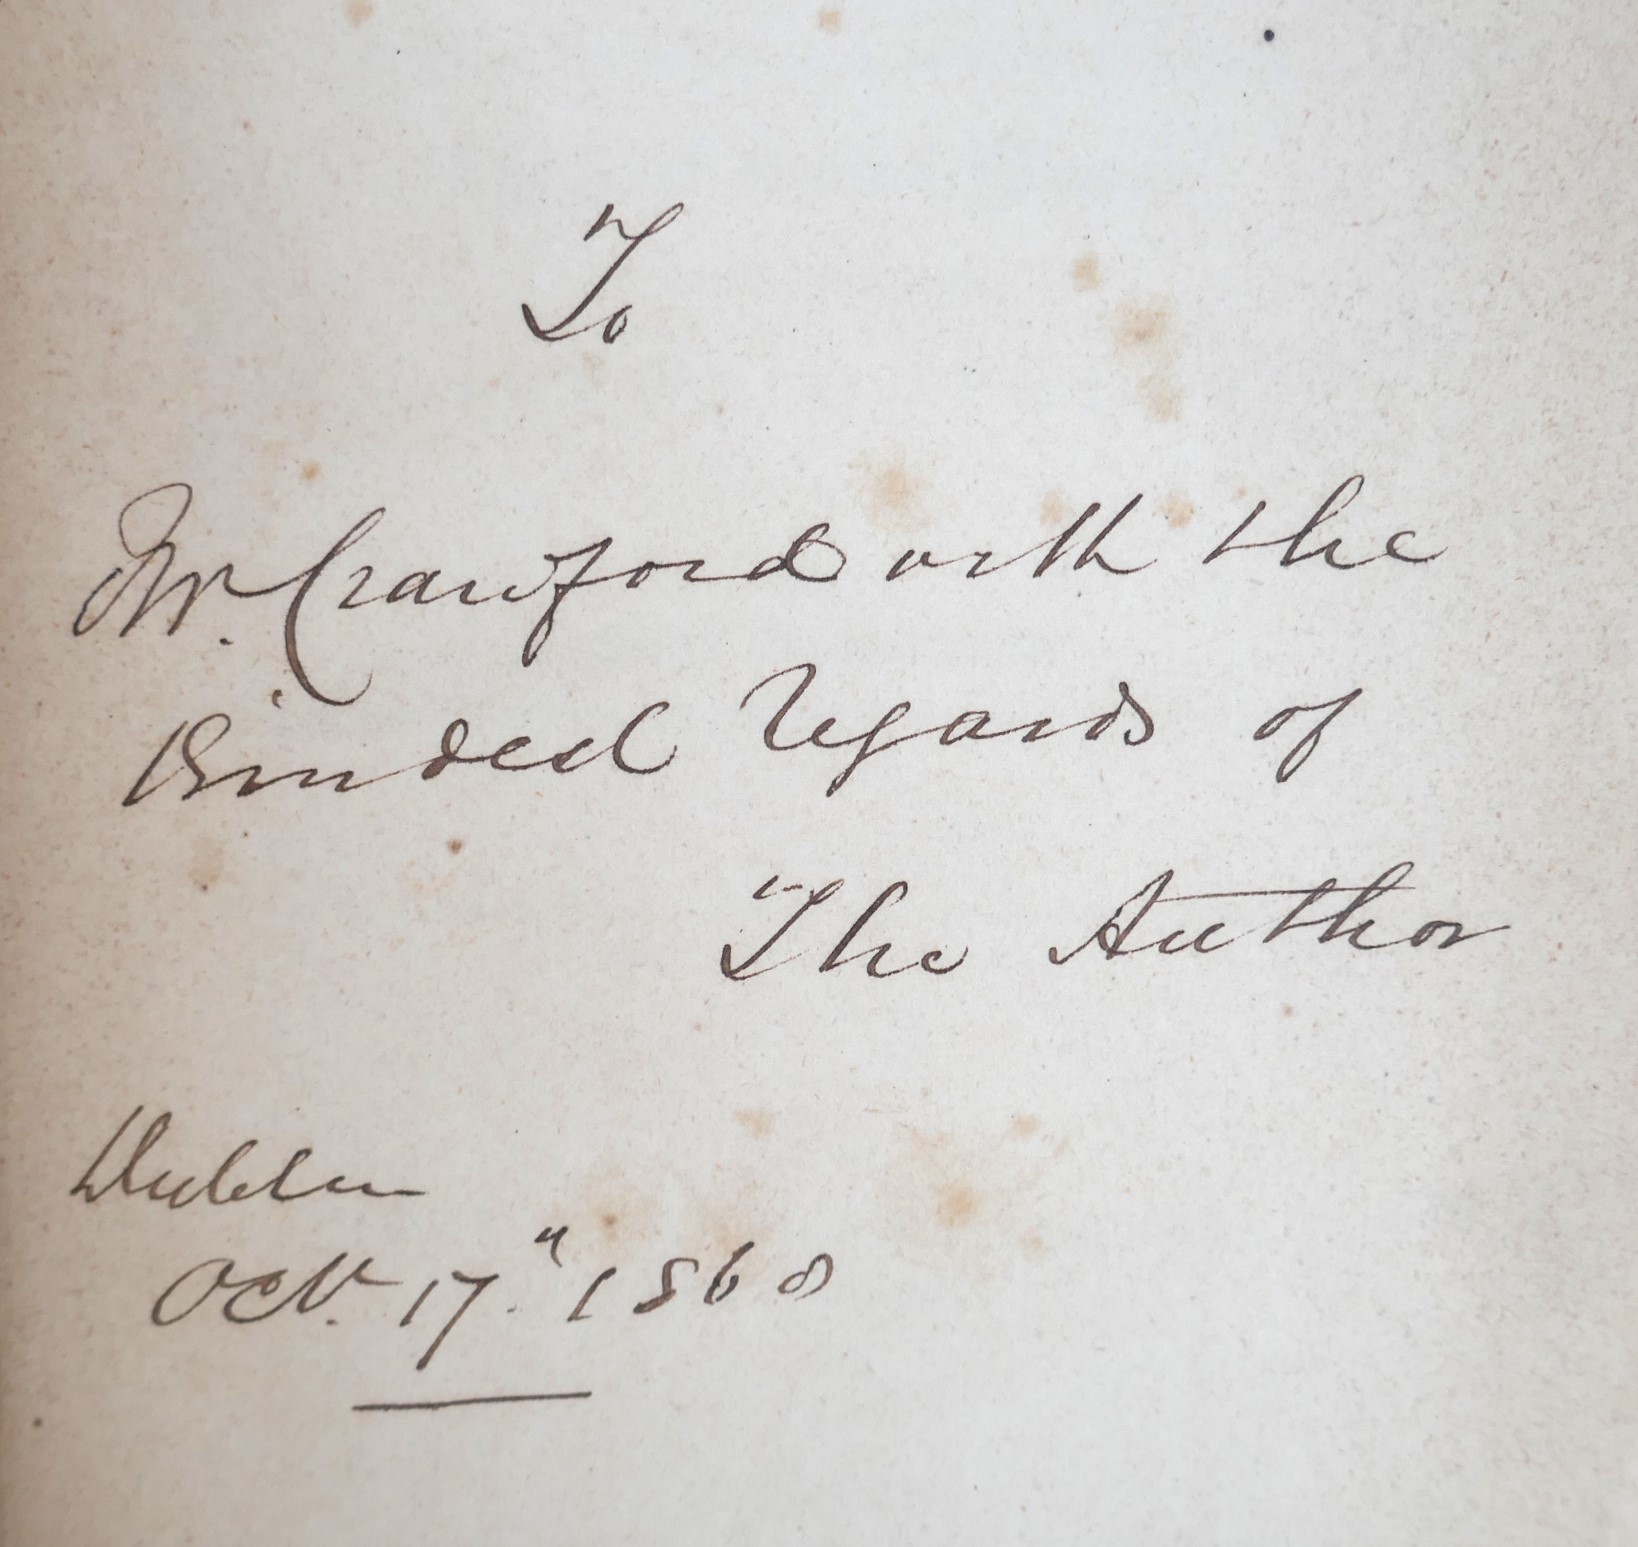 To
Mr. Crawford with the
Kindest regards of
The Author
Dublin
Oct. 17.th 1868